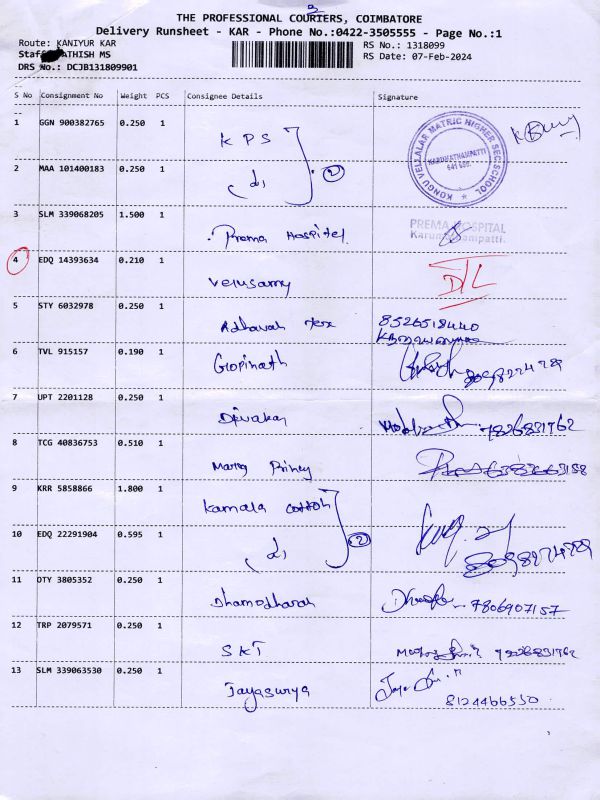 THE PROFESSIONAL COURIERS, COIMBATORE
Delivery Runsheet - KAR - Phone No.:0422-3505555 - Page No.:1
Route: KANIYUR KAR RS No.: 1318099
Staff ATHISH MS RS Date: 07-Feb-2024
DRS No.: DCJB131809901
S No Consignment No Weight PCS Consignee Details Signature
1 GGN 900382765 0.250 1 KPS
2 MAA 101400183 0.250 1 2
KONGU VELLALAR MATRIC HIGHER SEC. SCHOOL
KARUMATHAMPATTI
3 SLM 339068205 1.500 1 Prema Hospital PREMA HOSPITAL
4 EDQ 14393634 0.210 1 Verusamy D/L
5 STY 6032978 0.250 1 Adhavan Tex 8526518440
6 TVL 915157 0.190 1 Gopinath
7 UPT 2201128 0.250 1 Divakar 7826831762
8 TCG 40836753 0.510 1
9 KRR 5858866 1.800 1 Kamala cotton
10 EDQ 22291904 0.595 1 2
11 OTY 3805352 0.250 1 Dhamodharan 7806907157
12 TRP 2079571 0.250 1 SKT
13 SLM 339063530 0.250 1 Jayasurya 8124466550